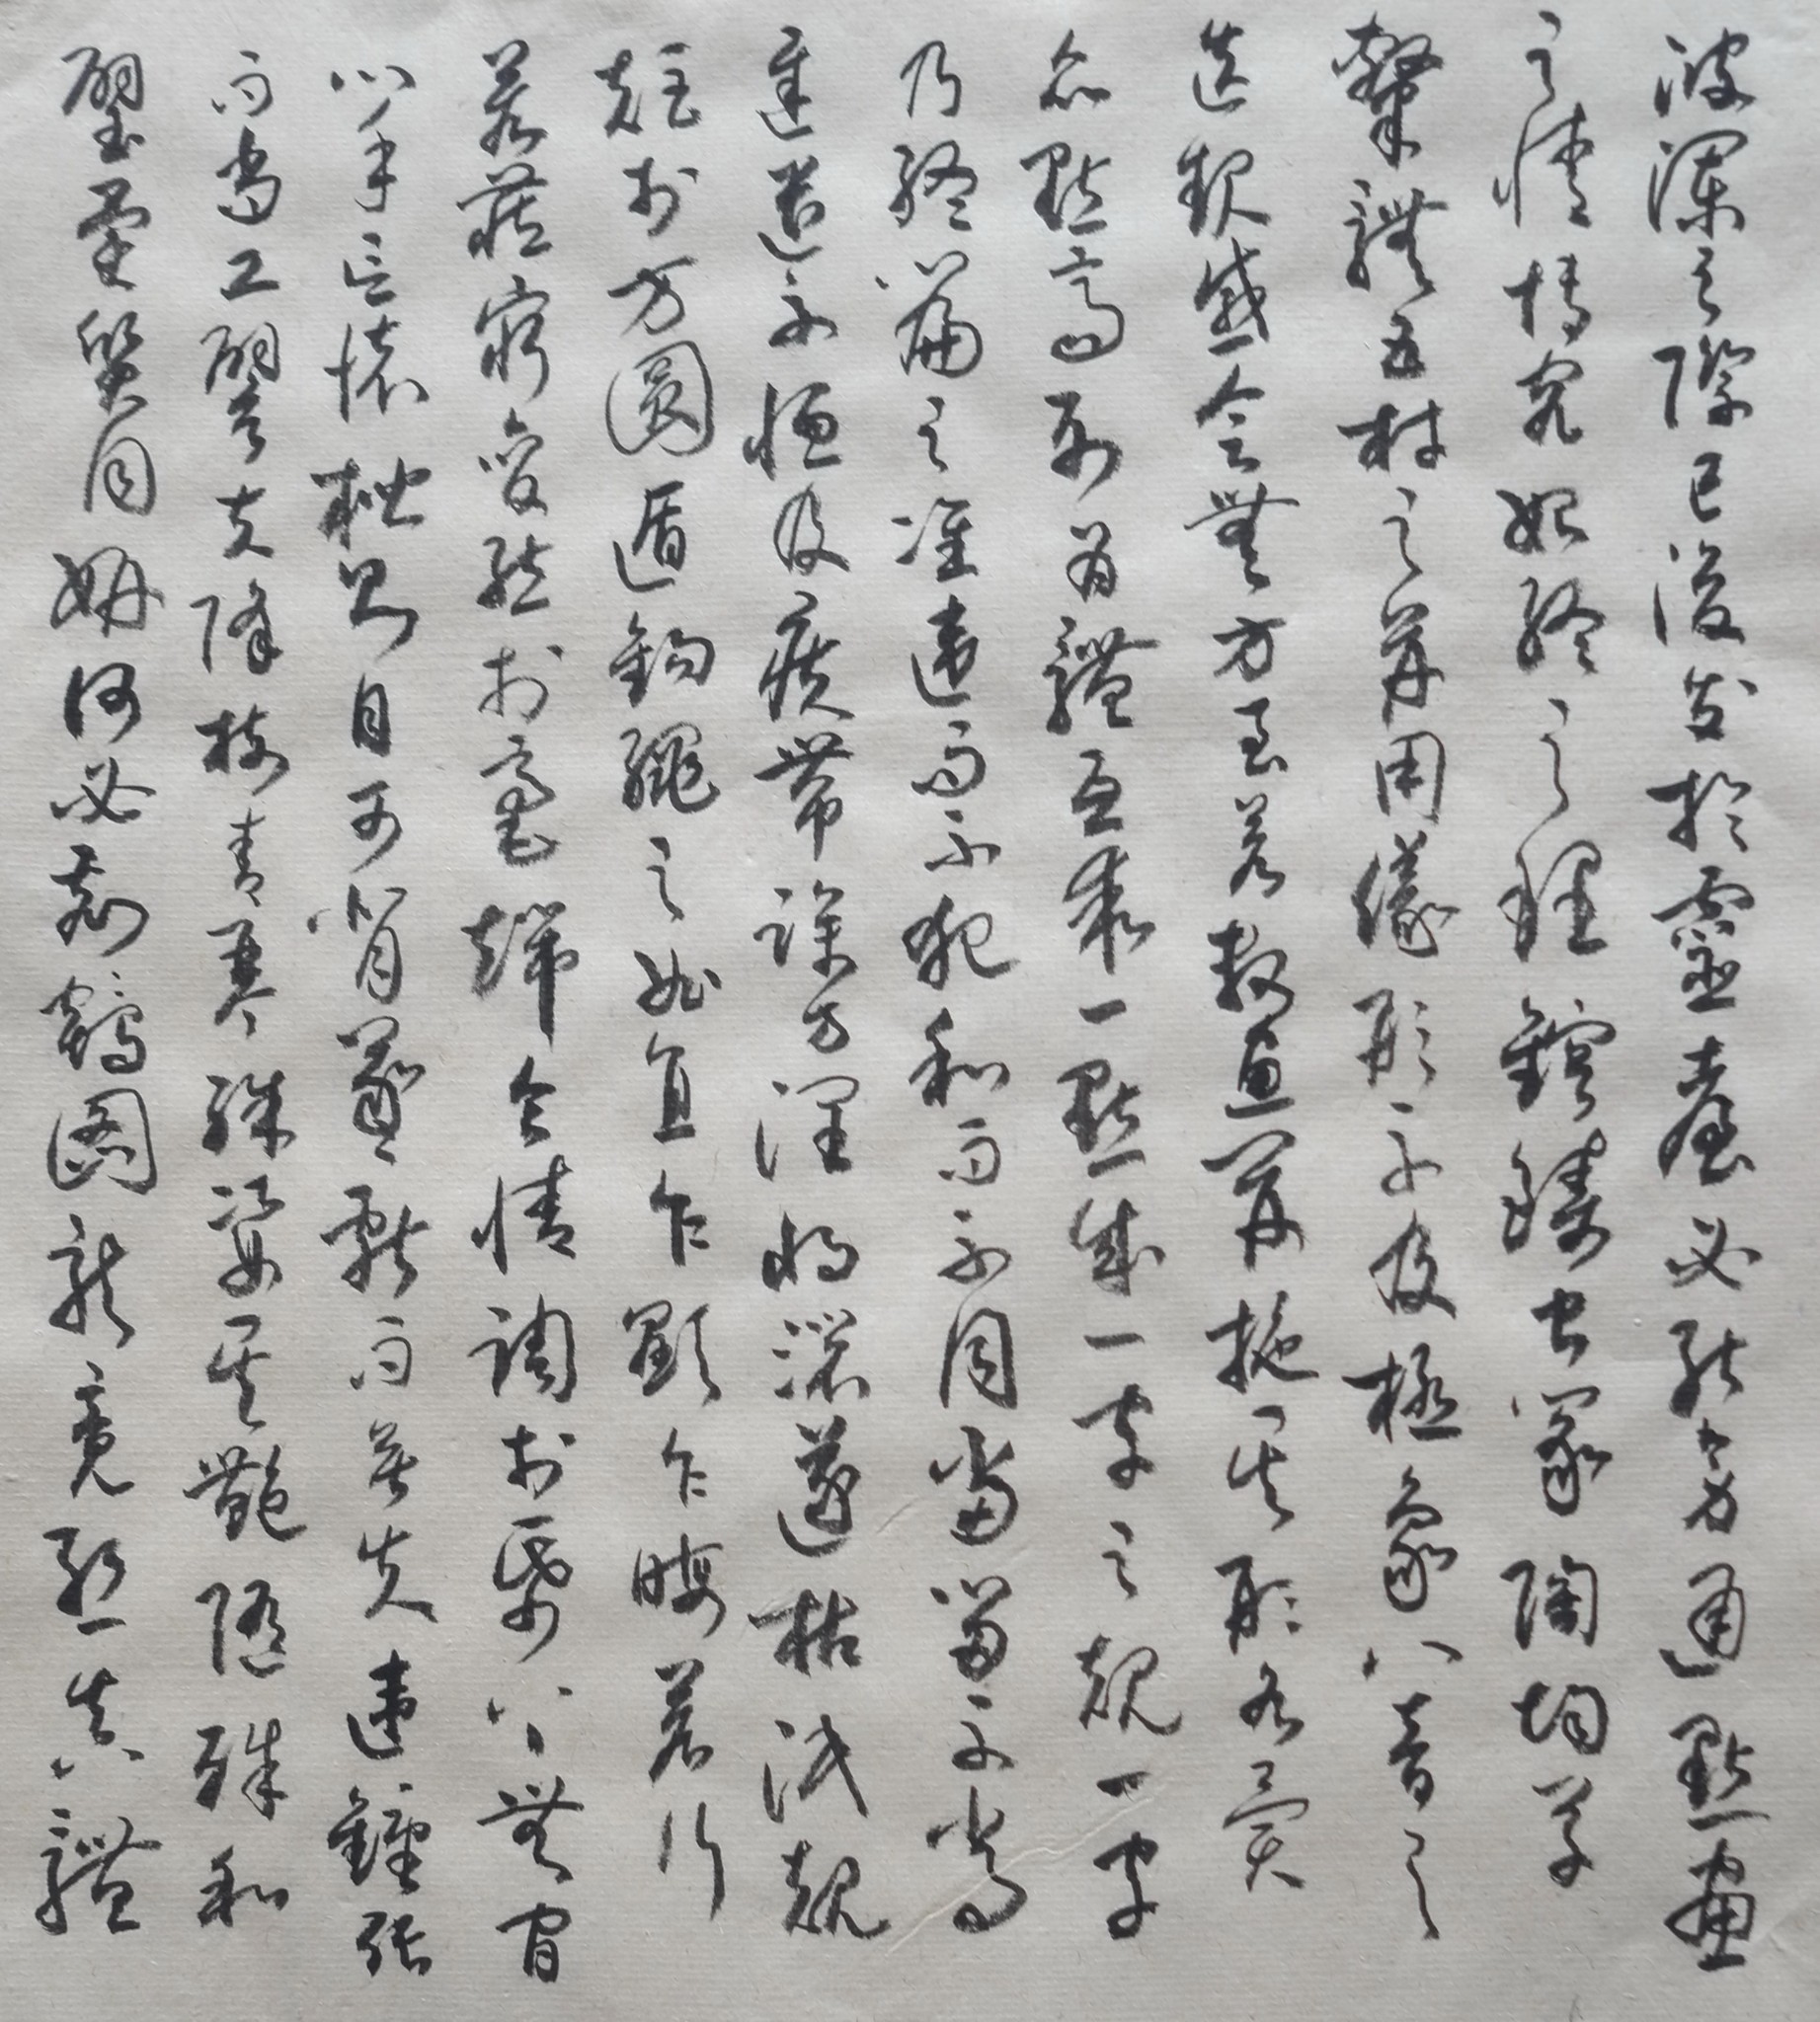 波瀾之際已濬发於靈臺必能旁通點畫
之情博究始終之理鎔鑄虫篆陶均草
隸體五材之并用儀形不及極象八音之
迭起感會無方至若數畫并施其形各異
眾點齊列為體互乖一點成一字之規一字
乃終篇之准違而不犯和而不同當留不常
遲遣不恒及疾帶燥方潤將濃遂枯泯規
矩於方圓遁鉤繩之曲直乍顯乍晦若行
若藏窮變態於毫端合情調於帋上無間
心手忘懷楷則自可背羲獻而無失違鍾張
而尚工譬夫絳樹青琴殊姿共艷隋殊和
璧異質同妍何必刻鶴圖龍竟慙真體